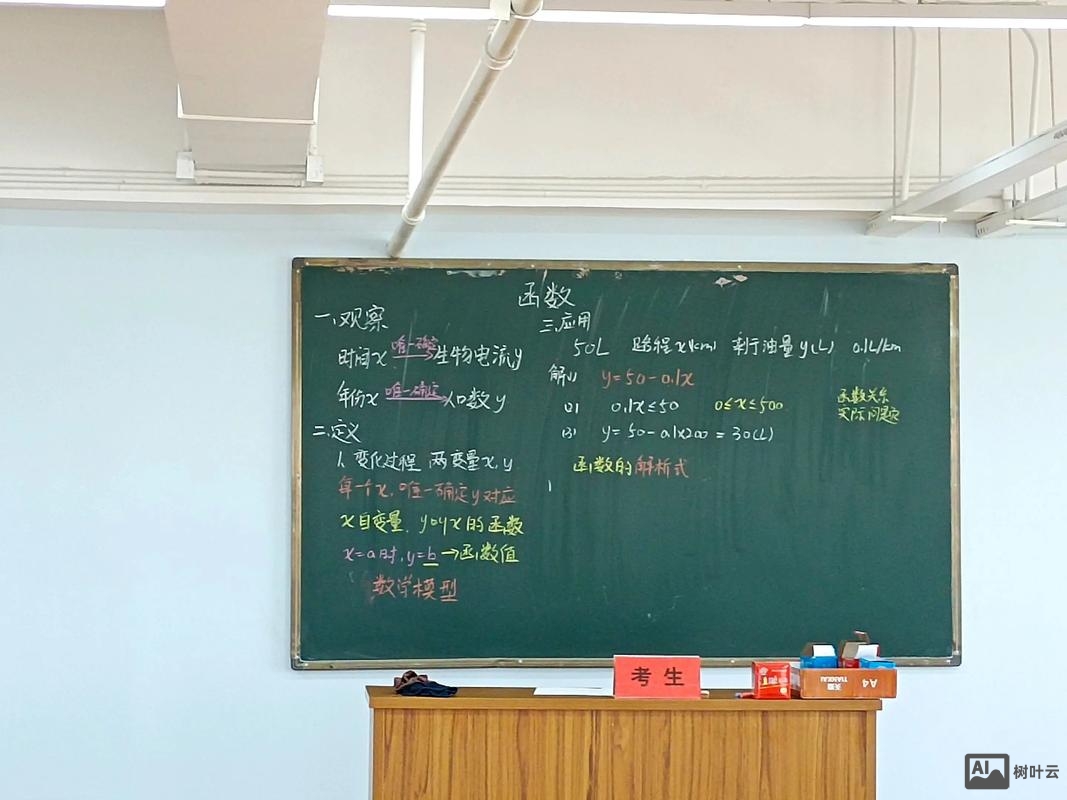 函数
一、观察
时间x 唯一确定 生物电流y
年份x 唯一确定 人口数y
二、定义
1、变化过程 两变量x,y
每一个x,唯一确定y对应
x自变量、y叫x的函数
x=a时,y=b→函数值
数学模型
三、应用
50L 路程x(km) 剩于油量y(L) 0.1L/km
解(1) y=50-0.1x
(2) 0.1x≤50 0≤x≤500
(3) y=50-0.1x200=30(L)
函数的解析式
函数关系
实际问题
考生
A4
TIANXLAI
AI 树叶云